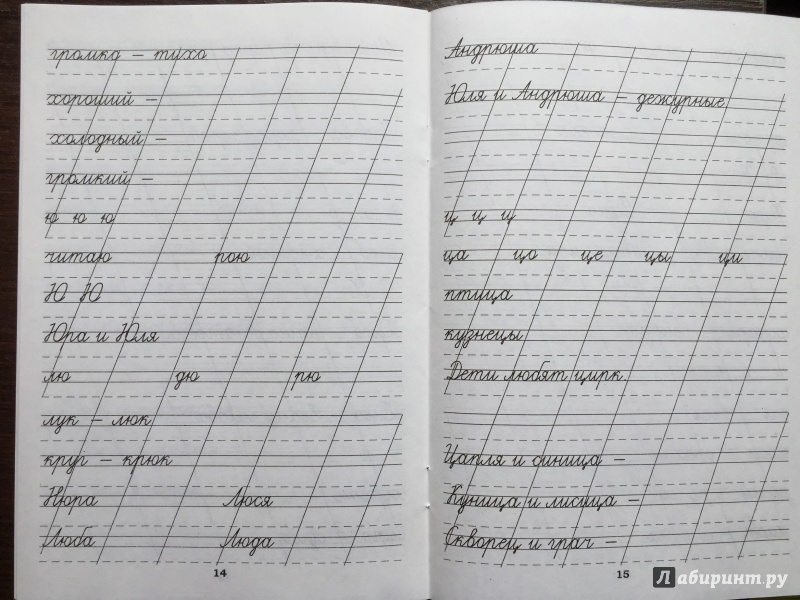 громко – тихо
хороший –
холодный –
громкий –
ю ю ю
читаю рою
Ю Ю
Юра и Юля
лю дю рю
лук – люк
круг – крюк
Нюра Люся
Люба Люда
14
Андрюша
Юля и Андрюша – дежурные.
ц ц ц
ца цо це цы ци
птица
кузнецы
Дети любят цирк.
Цапля и синица –
Куница и лисица –
Скворец и грач –
15
Лабиринт.ру